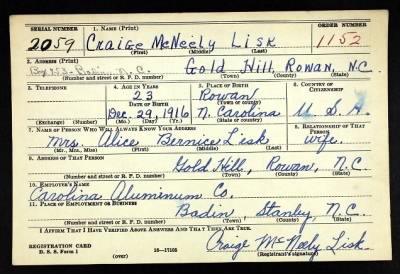 SERIAL NUMBER 1. NAME (Print) ORDER NUMBER
2059 Craige McNeely Lisk 1152
(First) (Middle) (Last)
2. ADDRESS (Print)
Badin, N.C. Gold Hill, Rowan, N.C.
(Number and street or R. F. D. number) (Town) (County) (State)
3. TELEPHONE 4. AGE IN YEARS 5. PLACE OF BIRTH 6. COUNTRY OF CITIZENSHIP
23 Rowan
DATE OF BIRTH (Town or county)
Dec. 29, 1916 N. Carolina U. S. A.
(Exchange) (Number) (Mo.) (Day) (Yr.) (State or country)
7. NAME OF PERSON WHO WILL ALWAYS KNOW YOUR ADDRESS 8. RELATIONSHIP OF THAT PERSON
Mrs. Alice Bernice Lisk wife.
(Mr., Mrs., Miss) (First) (Middle) (Last)
9. ADDRESS OF THAT PERSON
Gold Hill, Rowan, N.C.
(Number and street or R. F. D. number) (Town) (County) (State)
10. EMPLOYER'S NAME
Carolina Aluminum Co.
11. PLACE OF EMPLOYMENT OR BUSINESS
Badin, Stanly, N.C.
(Number and street or R. F. D. number) (Town) (County) (State)
I AFFIRM THAT I HAVE VERIFIED ABOVE ANSWERS AND THAT THEY ARE TRUE.
REGISTRATION CARD Craige McNeely Lisk.
D. S. S. Form 1 (over) 16—17105 (Registrant's signature)